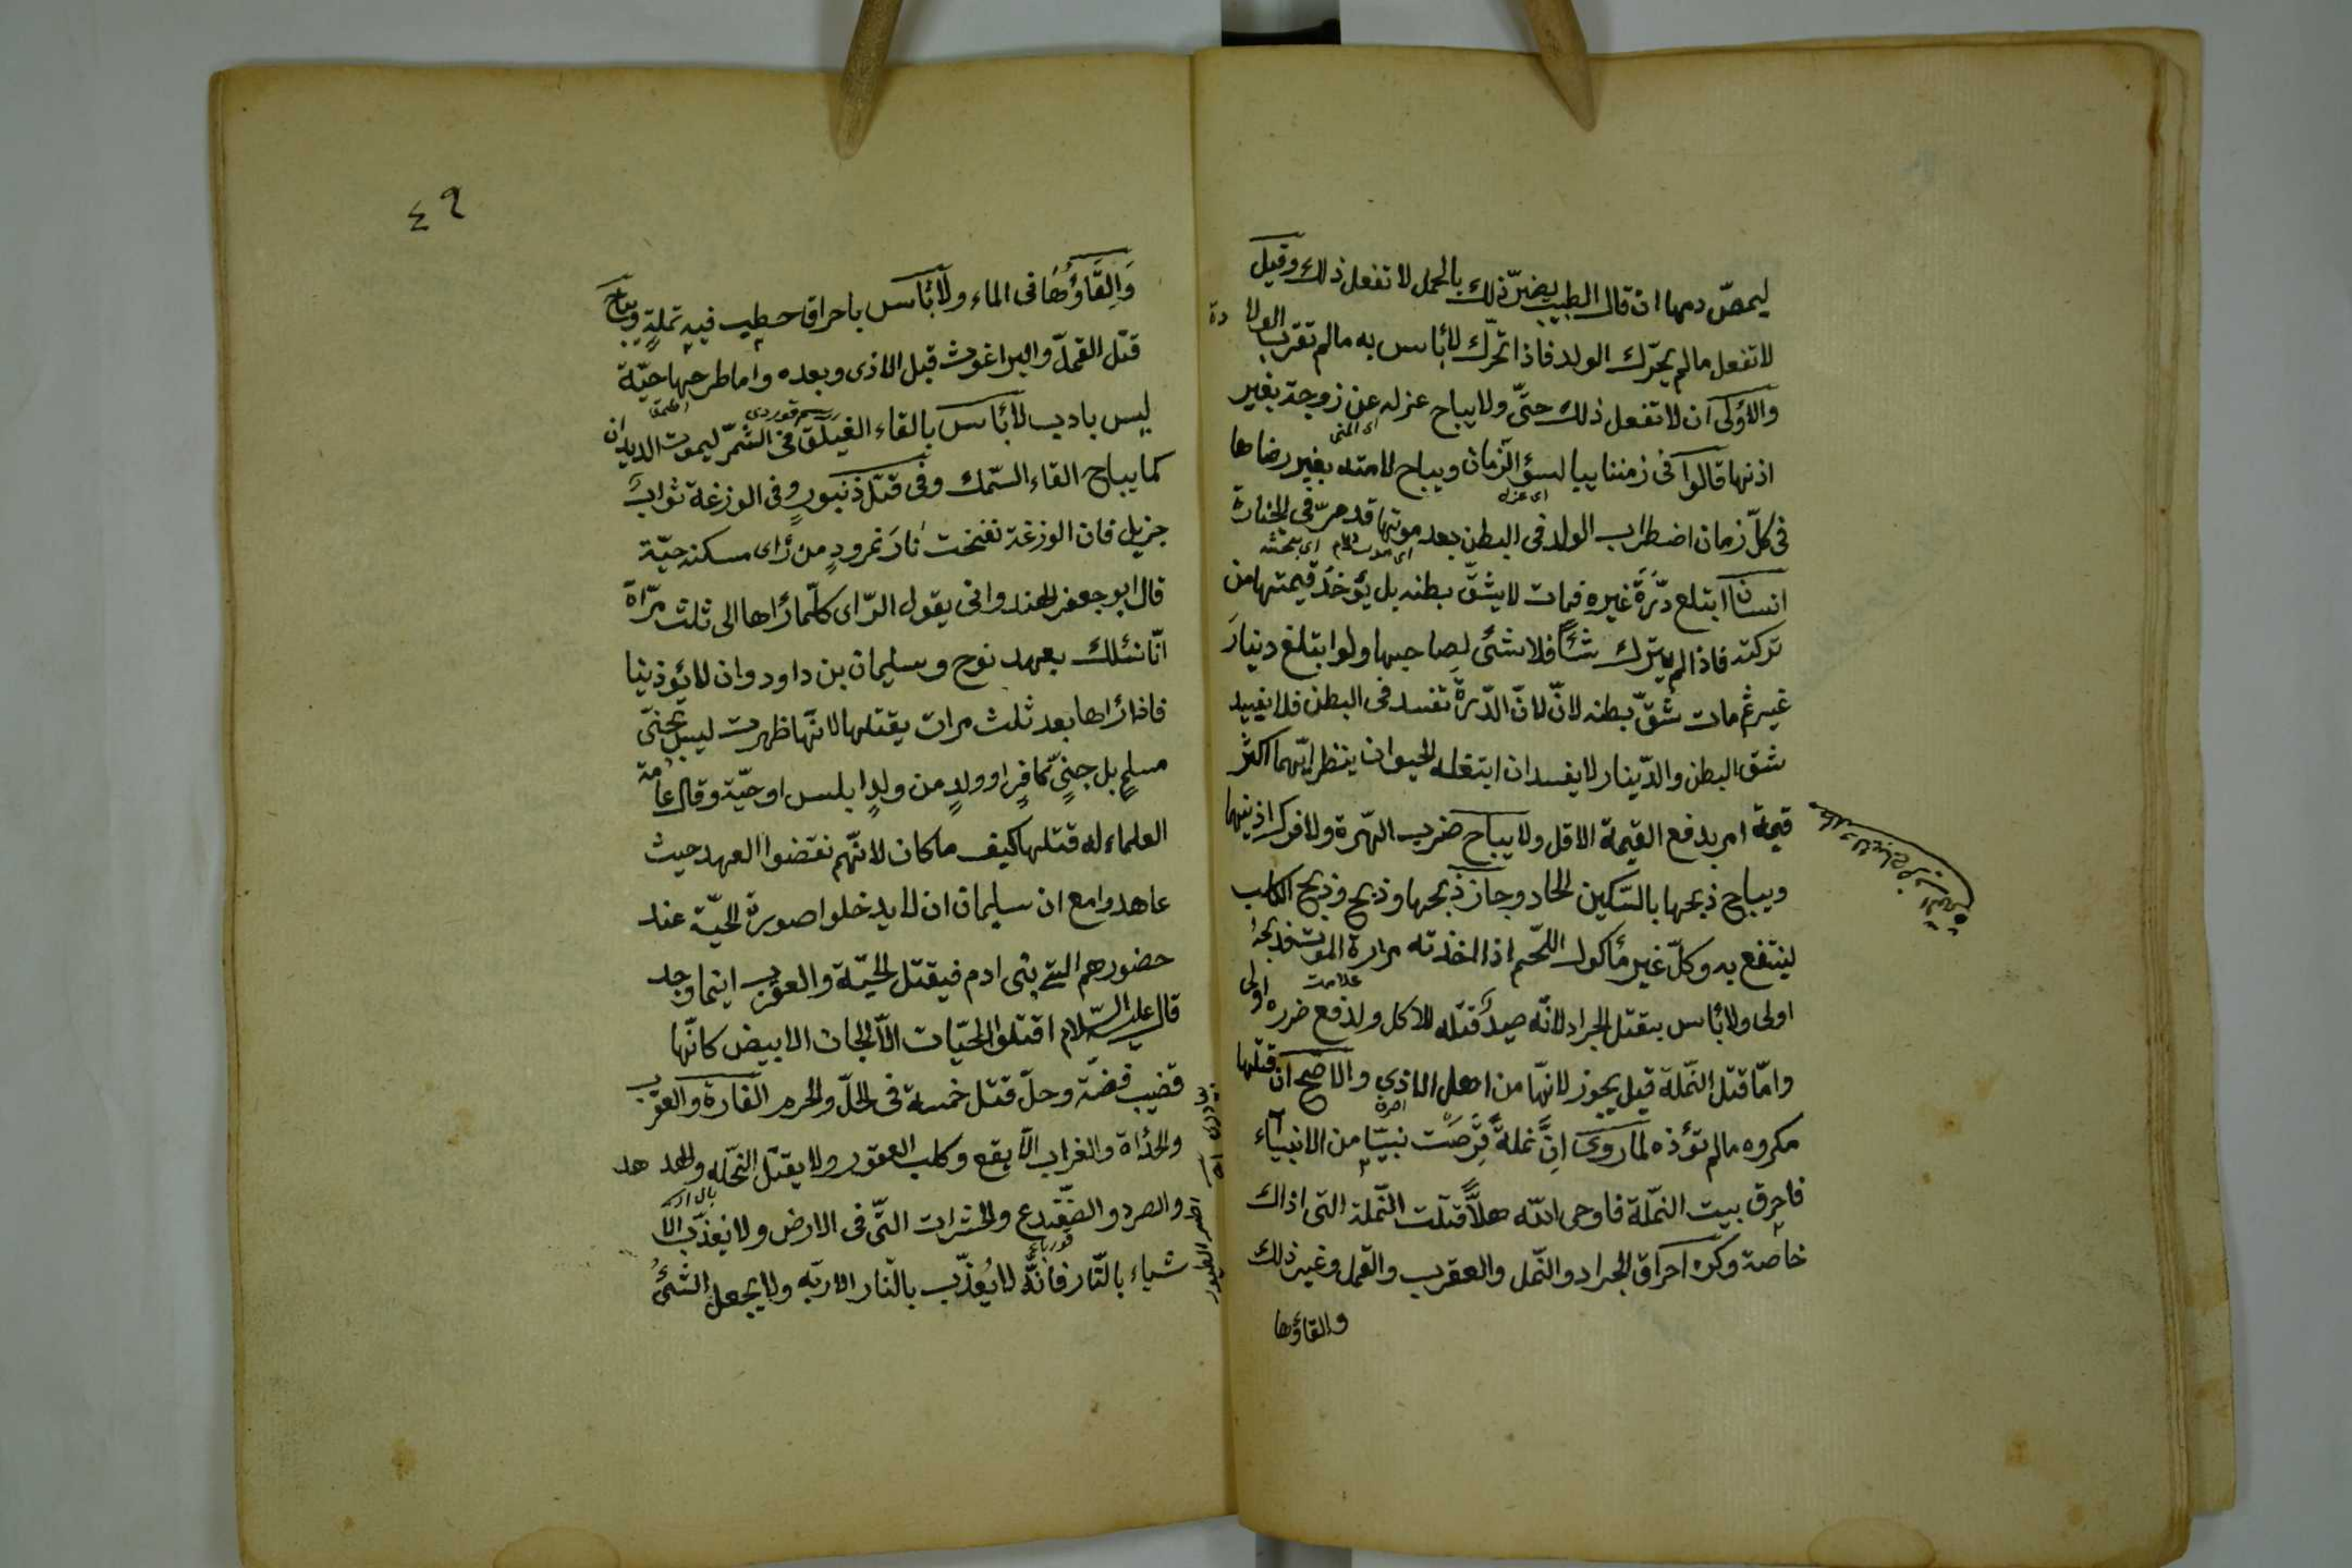 ليمصّ دمها ان قال الطبيب يضرّ ذلك بالحمل لا تفعل ذلك وقيل
لا تفعل ما لم يحرّك الولد فاذا تحرّك لا بأس به ما لم تقرب الولادة
والاولى ان لا تفعل ذلك حتّى ولا يباح عزله عن زوجة بغير
اى المنى
اذنها قالوا فى زمننا يباح لسوء الزمان ويباح لامته بغير رضاها
اى عزله
فى كلّ زمان اضطراب الولد فى البطن بعد موتها قد مرّ فى الجنازة
انسان ابتلع درّة غيره فمات لا يشقّ بطنه بل يؤخذ قيمتها من
تركته فاذا لم يترك شئا فلا شئ لصاحبها ولو ابتلغ دينار
غير ثم مات شقّ بطنه لانّ لانّ الدّرة تفسد فى البطن فلا يفيد
شق البطن والدّينار لا يفسد ان ابتغله الحيوان ينظر ايّهما اكثر
قيمة امر بدفع القيمة الاقل ولا يباح ضرب الهّرة ولا فرك اذنيهما
ويباح ذبحها بالسّكين الحاد وجاز ذبحها وذبح وذبح الكلب
لينتفع به وكلّ غير مأكول اللّحم اذا اخذته مرارة الموت فذبحه
علامت
اولى ولا بأس بقتل الجراد لانّه صيد قتله للاكل ولدفع ضرره اولى
وامّا قتل النّملة قيل يجوز لانّها من اهل الاذى والاصّح ان قتلها
مكروه ما لم تؤذه لما روى انّ نملة قرصت نبيّا من الانبياء
فاحرق بيت النّملة فاوحى الله هلاّ قتلت النّملة التى اذاك
خاصة وكره احراق الجراد والنّمل والعقرب والقمل وغير ذلك
والقاؤها
٤٩
والقاؤها فى الماء ولا بأس باحراق حطب فيه نملة ويباح
قتل القمل والبراغوث قبل الاذى وبعده واما طرحها حيّة
ليس بادب لا بأس بالقاء الفيلق فى الشمر ليموت الديدان
كما يباح القاء السّمك وفى قتل ذنبور وفى الوزغة ثواب
جزيل فان الوزغة نفخت نار نمرود من رأى مسكنه حيّة
قال ابو جعفر الهندوانى يقول الرّاى كلّما رأها الى ثلث مرّاة
انّا نسئلك بعهد نوح وسليمان بن داود وان لا تؤذينا
فاذا رأها بعد ثلث مرات يقتلها لانّها ظهرت ليس بجنىّ
مسلم بل جنىّ كافر او ولد من ولد ابلس او حيّة وقال عامة
العلماء له قتلها كيف ما كان لانّهم نقضوا العهد حيث
عاهدوا مع ان سليمان ان لا يدخلوا صورة الحيّة عند
حضورهم الى بنى ادم فيقتل الحيّة والعقرب اينما وجد
قال عليه السّلام اقتلوا الحيّات الاّ الجان الابيض كانّها
قضيب فضّة وحلّ قتل خمسة فى الحلّ والحرم الفارة والعقرب
والحدأة والغراب الابقع وكلب العقور ولا يقتل النّحلة والهدهد
والصرد والضّفدع والحشرات التّى فى الارض ولا يعذّب الا
شياء بالنّار فانّه لا يُعذّب بالنّار الا ربّه ولا يجعل الشئ